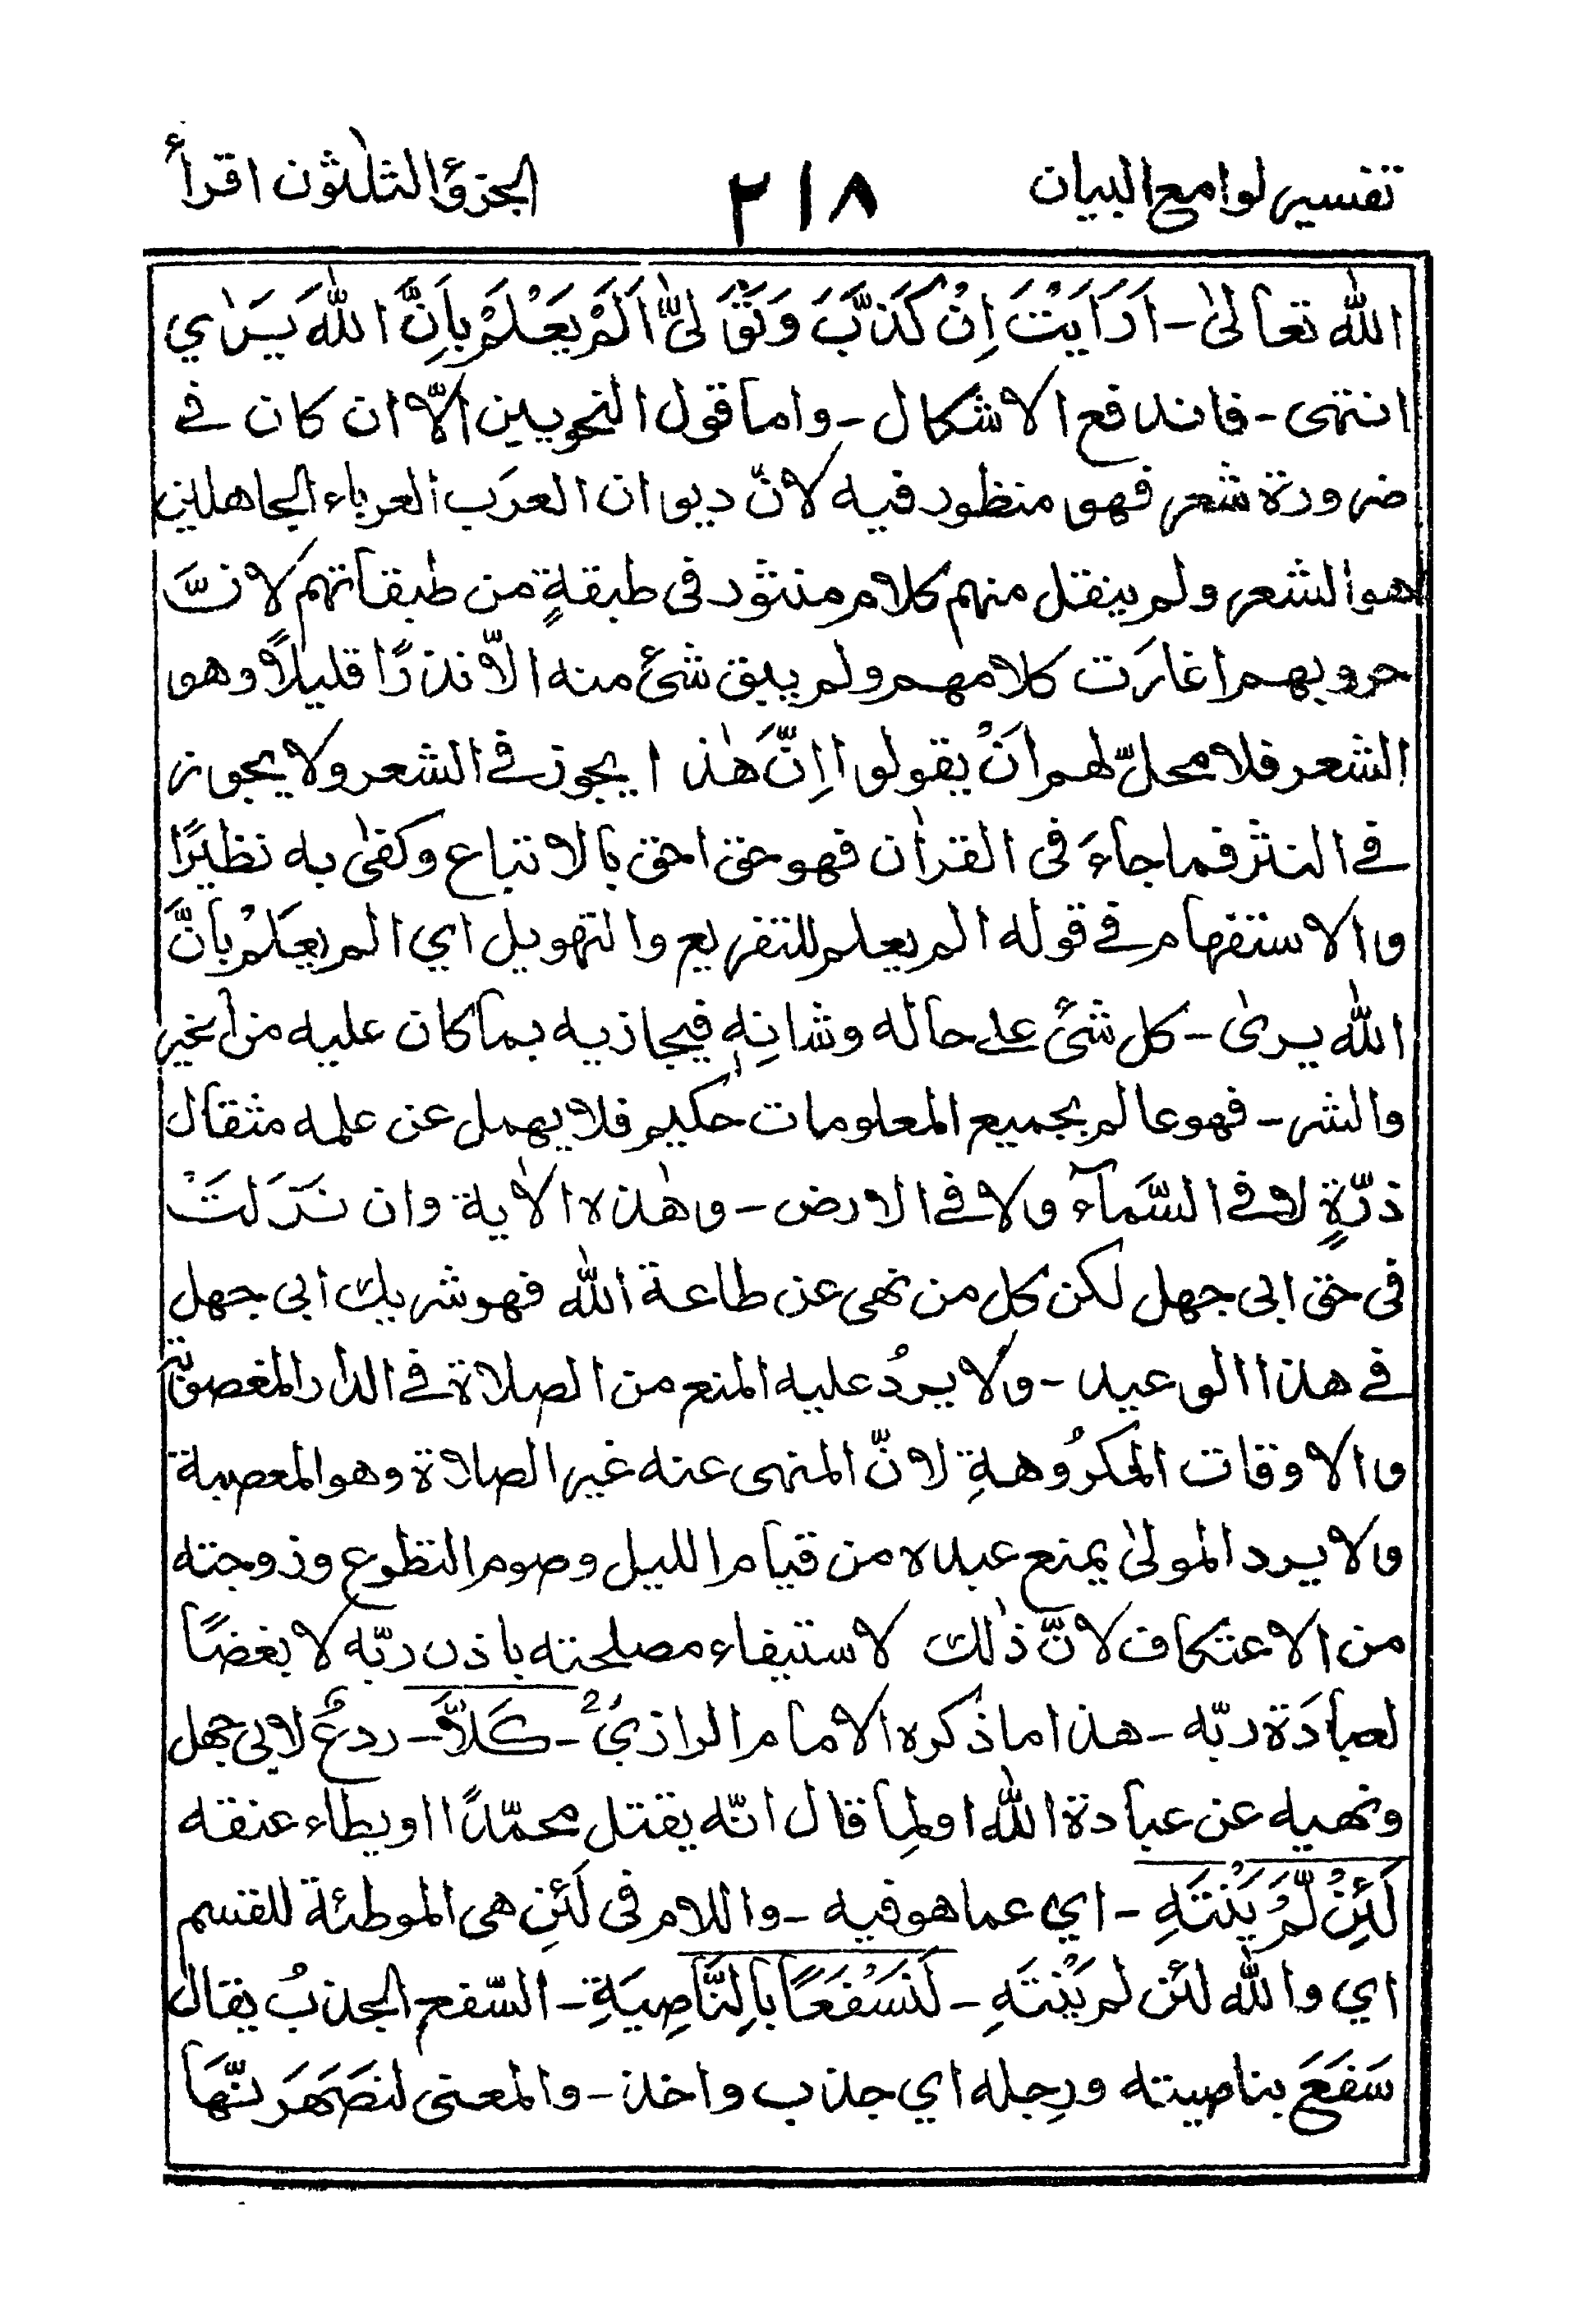 تفسير لوامع البيان ٢١٨ الجزؤ الثلٰثون اقرأ
اللّٰه تعالىٰ - اَرَاَيْتَ اِنْ كَذَّبَ وَتَوَلىّٰ اَلَمْ يَعْلَمْ بِاَنَّ اللّٰهَ يَرٰي
انتهى - فاندفع الاشكال - واما قول النحويين الّا ان كان فے
ضرورة شعر فهو منظور فيه لانّ ديوان العرَب العرباء الجاهلين
هو الشعر ولم ينقل منهم كلام منثور فى طبقةٍ من طبقاتهم لانَّ
حروبهم اغارَت كلامهم ولم يبق شئ منه الّا نذرًا قليلاً وهو
الشعر فلا محلّ لهم اَنْ يقولوا اِنَّ هٰذا يجوز فے الشعر ولا يجوز
فے النثر فما جاءَ فى القراٰن فهو حق احق بالاتباع وكفىٰ به نظيرًا
والاستفهام فے قوله الم يعلم للتفريع والتهويل اي الم يعلمْ باَنَّ
اللّٰه يرىٰ - كل شئ علے حاله وشانِهٖ فيجازيه بما كان عليه من الخير
والشر - فهو عالم بجميع المعلومات حكيم فلا يهمل عن علمه مثقال
ذرّةٍ لا فے السَّمآء ولا فے الارض - وهٰذه الاٰية وان نزَلتْ
فى حق ابى جهل لكن كل من نهى عن طاعة اللّٰه فهو شريك ابى جهل
فے هذا الوعيد - ولا يردُ عليه المنع من الصلاة فے الدار المغصوبة
والاوقات المكرُوهةِ لانّ المنهى عنه غير الصلاة وهو المعصية
ولا يرد المولىٰ يمنع عبده من قيام الليل وصوم التطوع وزوجته
من الاعتكاف لانَّ ذٰلك لاستيفاء مصلحته باذن ربّه لا بغضًا
لعبادَة ربّه - هذا ما ذكره الامام الرازىُ - كَلاَّ - ردعٌ لابى جهل
ونهيه عن عبادة اللّٰه اولِما قال انّه يقتل محمّدًا او يطاء عنقه
لَئِنْ لَّمْ يَنْتَهِ - اي عما هو فيه - واللام فى لَئن هى الموطئة للقسم
اي واللّٰه لئن لم يَنْتَهِ - لَنَسْفَعًا بِالنَّاصِيَةِ - السّفع الجذبُ يقال
سَفَعَ بناصيته ورِجله اي جذب واخذ - والمعنى لنصَهَرَنّهَا